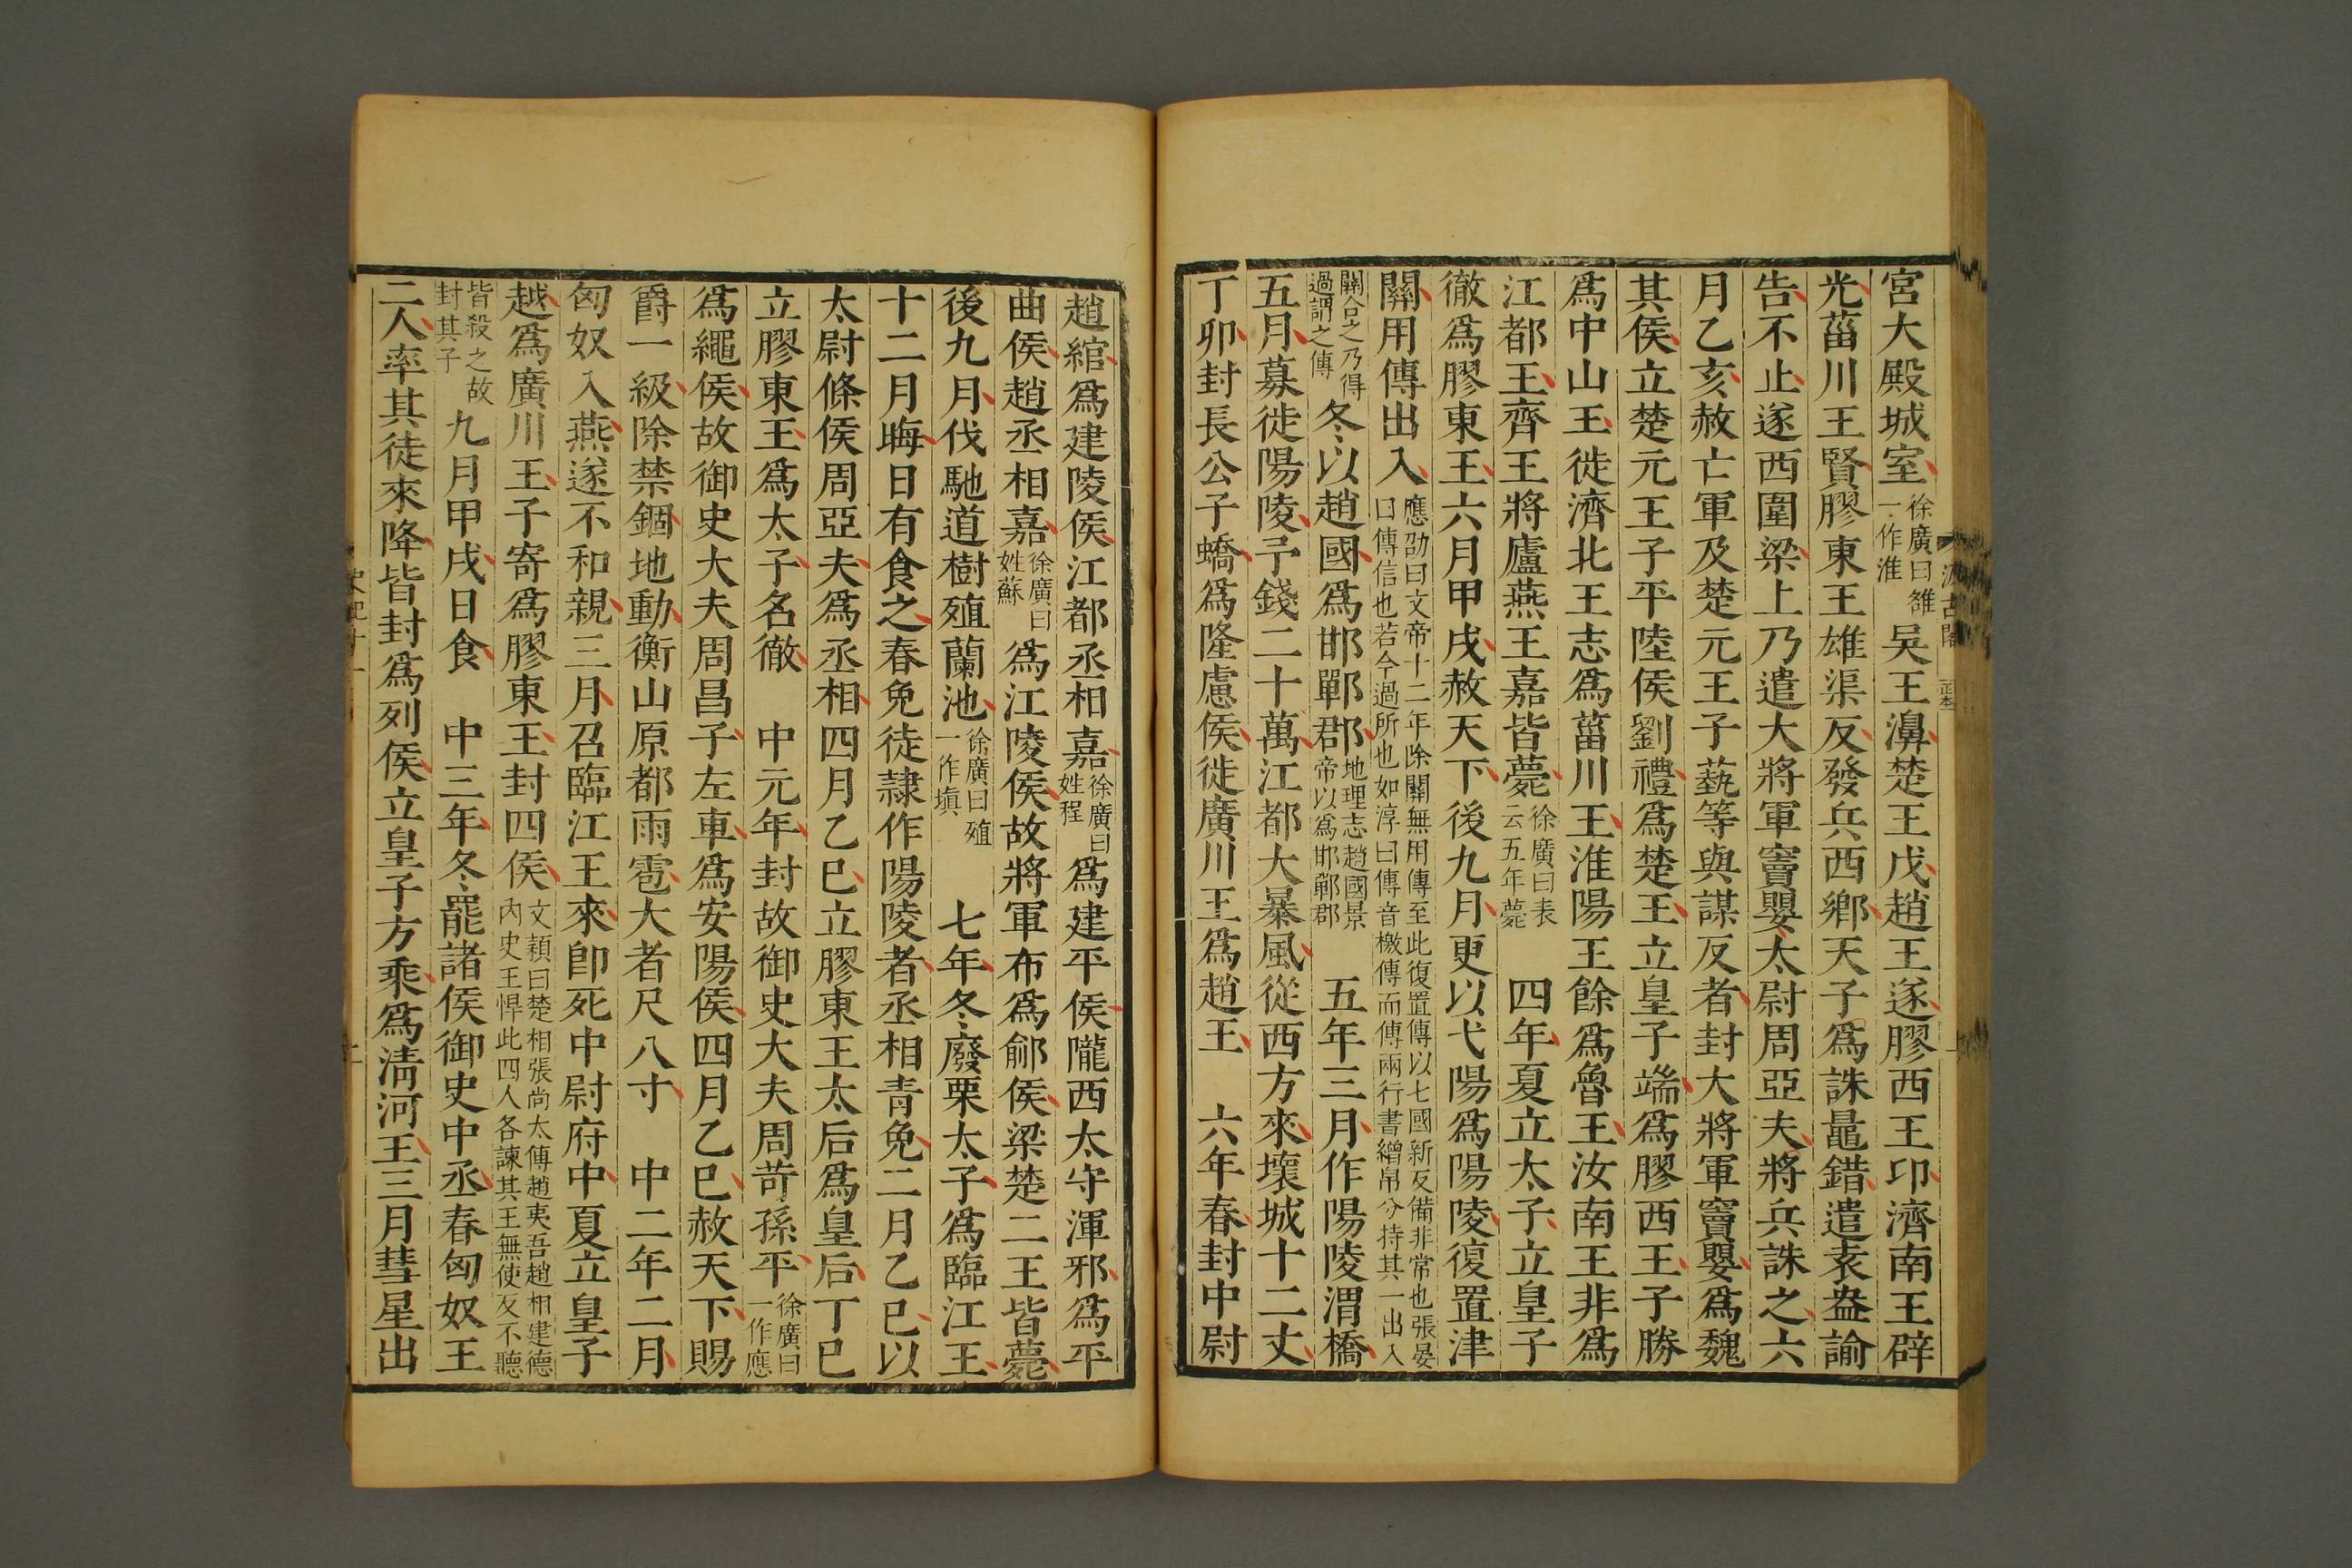 宮大殿城室徐廣曰雒一作淮吳王濞楚王戊趙王遂膠西王卬濟南王辟
光菑川王賢膠東王雄渠反發兵西鄉天子爲誅鼂錯遣袁盎諭
告不止遂西圍梁上乃遣大將軍竇嬰太尉周亞夫將兵誅之六
月乙亥赦亡軍及楚元王子蓺等與謀反者封大將軍竇嬰爲魏
其侯立楚元王子平陸侯劉禮爲楚王立皇子端爲膠西王子勝
爲中山王徙濟北王志爲菑川王淮陽王餘爲魯王汝南王非爲
江都王齊王將廬燕王嘉皆薨徐廣曰表云五年薨 四年夏立太子立皇子
徹爲膠東王六月甲戌赦天下後九月更以弋陽爲陽陵復置津
關用傳出入應劭曰文帝十二年除關無用傳至此復置傳以七國新反備非常也張晏曰傳信也若今過所也如淳曰傳音檄傳而傳兩行書繒帛分持其一出入
關合之乃得過謂之傳冬以趙國爲邯鄲郡地理志趙國景帝以爲邯鄲郡 五年三月作陽陵渭橋
五月募徙陽陵予錢二十萬江都大暴風從西方來壞城十二丈
丁卯封長公子蟜爲隆慮侯徙廣川王爲趙王 六年春封中尉
趙綰爲建陵侯江都丞相嘉徐廣曰姓程爲建平侯隴西太守渾邪爲平
曲侯趙丞相嘉徐廣曰姓蘇爲江陵侯故將軍布爲鄃侯梁楚二王皆薨
後九月伐馳道樹殖蘭池徐廣曰殖一作塡 七年冬廢栗太子爲臨江王
十二月晦日有食之春免徒隷作陽陵者丞相青免二月乙巳以
太尉條侯周亞夫爲丞相四月乙巳立膠東王太后爲皇后丁巳
立膠東王爲太子名徹 中元年封故御史大夫周苛孫平徐廣曰一作應
爲繩侯故御史大夫周昌子左車爲安陽侯四月乙巳赦天下賜
爵一級除禁錮地動衡山原都雨雹大者尺八寸 中二年二月
匈奴入燕遂不和親三月召臨江王來卽死中尉府中夏立皇子
越爲廣川王子寄爲膠東王封四侯文穎曰楚相張尚太傅趙夷吾趙相建德內史王悍此四人各諫其王無使反不聽
皆殺之故封其子九月甲戌日食 中三年冬罷諸侯御史中丞春匈奴王
二人率其徒來降皆封爲列侯立皇子方乘爲淸河王三月彗星出